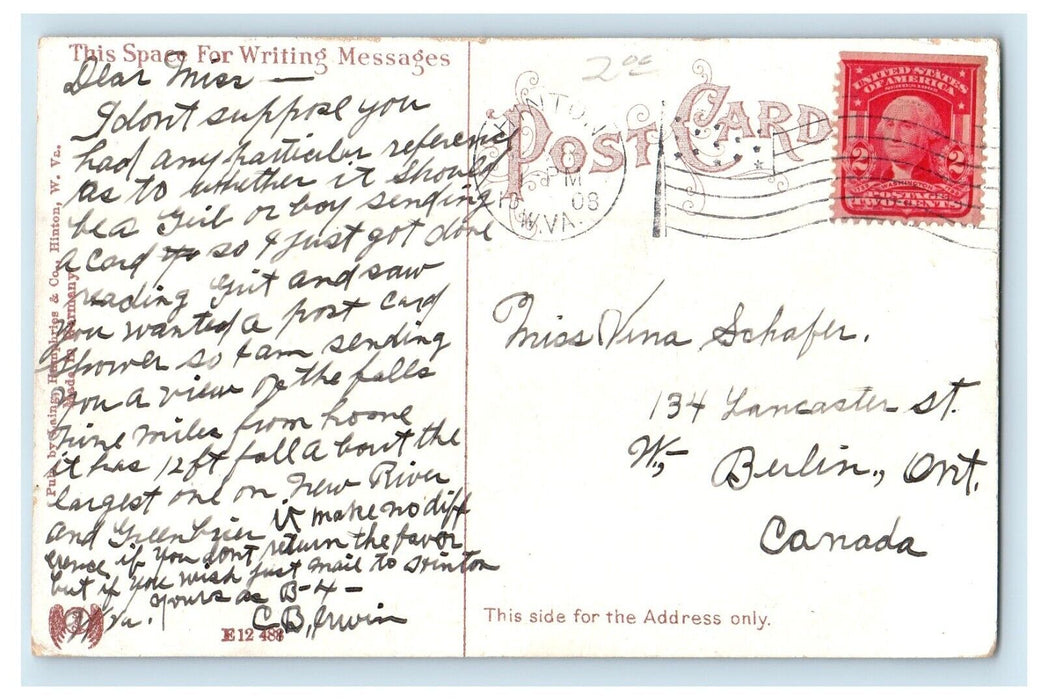 This Space For Writing Messages
Dear Miss —
I dont suppose you
had any particular reference
as to whether it should
be a Girl or boy sending
a card so I just got done
reading Grit and saw
you wanted a post card
shower so I am sending
you a view of the falls
nine miles from home
it has 12 ft fall about the
largest one on New River
and Greenbrier it make no diff
erence if you dont return the favor
but if you wish just mail to Hinton
W Va. Yours as B-4 —
C B, Irwin
Pub. by Laing, Humphries & Co., Hinton, W. Va.
Made in Germany
E 12 488
2oc
POST CARD
HINTON
PM
10 08
W.VA.
UNITED STATES
OF AMERICA
SERIES 1902
2 2
WASHINGTON
POSTAGE
TWO CENTS
Miss Vina Schafer.
134 Lancaster st.
W,- Berlin, Ont.
Canada
This side for the Address only.